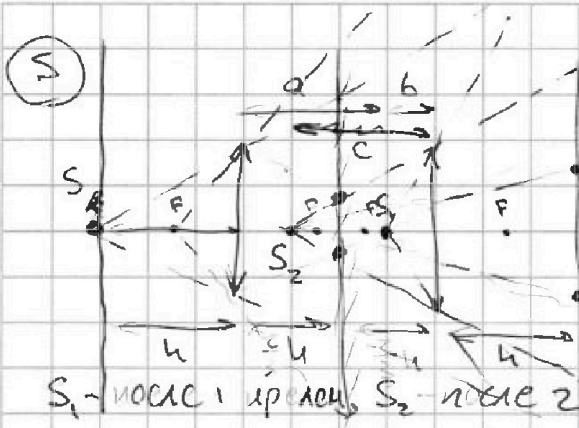 5
a b
c
S F F F S₁ F
S₂
h h h h
S₁ - после 1 прелом S₂ - после 2